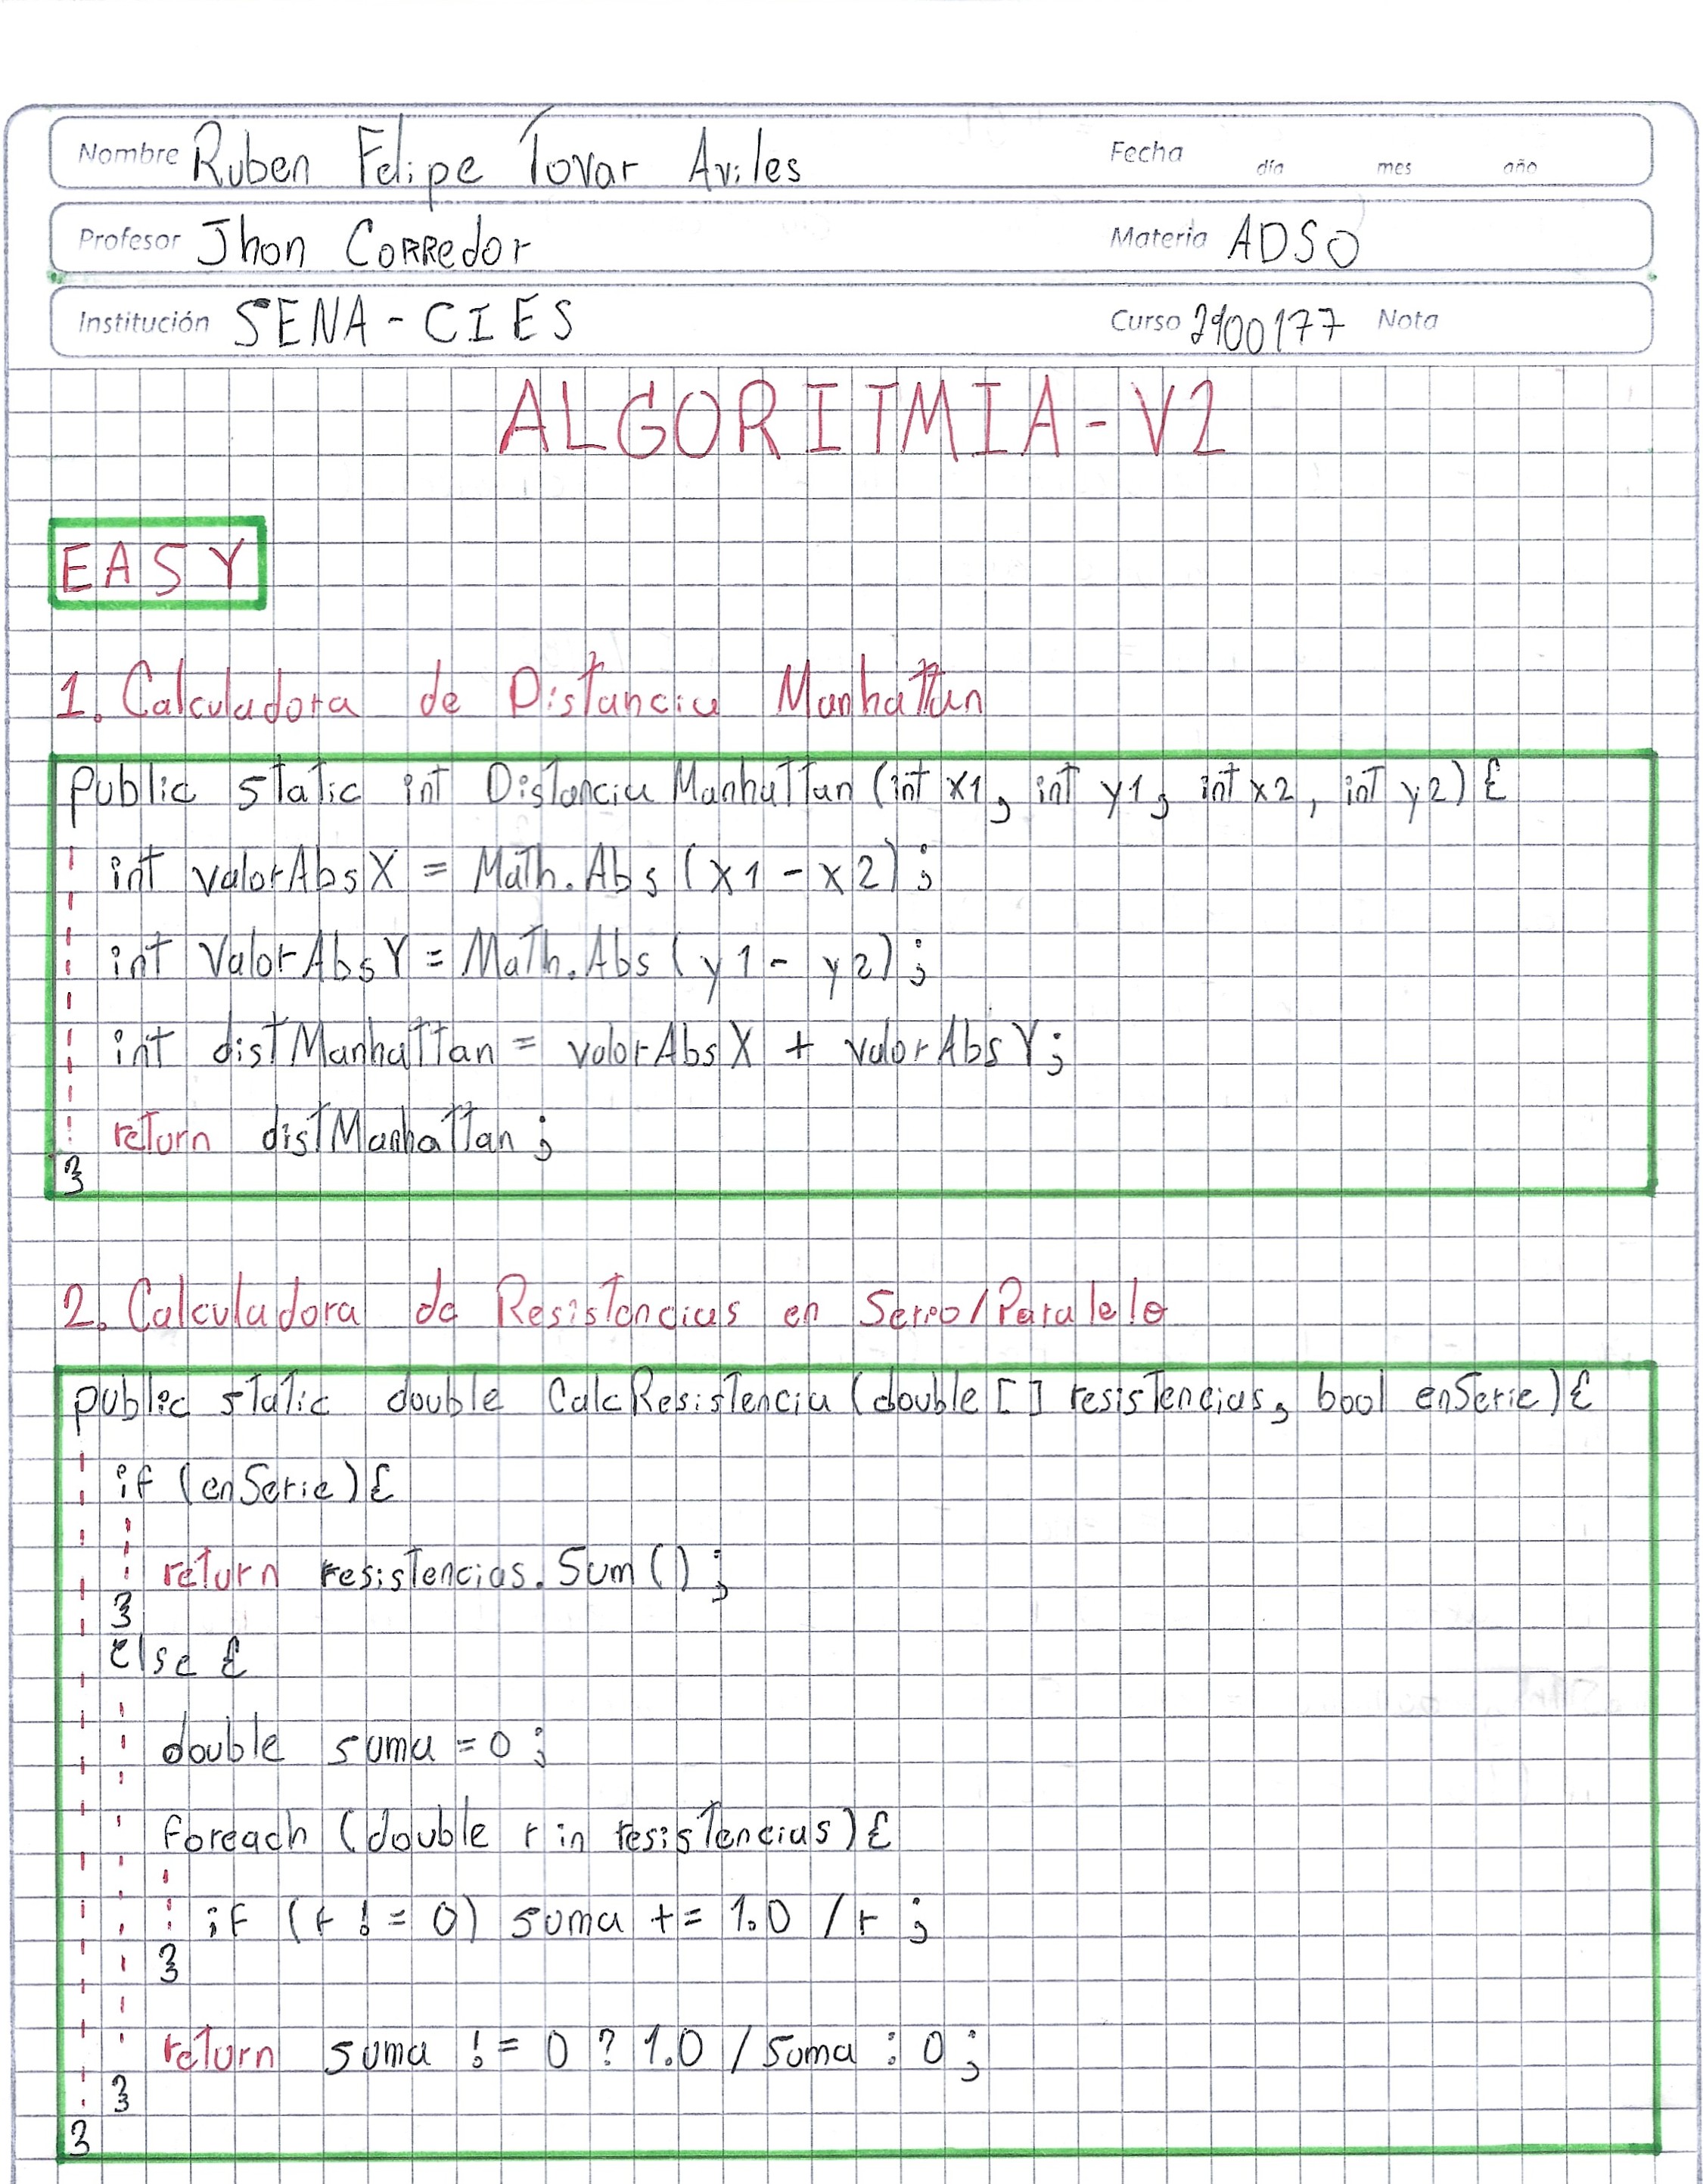 Nombre Ruben Felipe Tovar Aviles Fecha día mes año
Profesor Jhon Corredor Materia ADSO
Institución SENA-CIES Curso 2900177 Nota
ALGORITMIA-V2
EASY
1. Calculadora de Distancia Manhattan
public static int DistanciaManhattan (int x1, int y1, int x2, int y2) {
int valorAbsX = Math.Abs (x1 - x2);
int valorAbsY = Math.Abs (y1 - y2);
int distManhattan = valorAbsX + valorAbsY;
return distManhattan;
}
2. Calculadora de Resistencias en Serio/Paralelo
public static double CalcResistencia (double [] resistencias, bool enSerie) {
if (enSerie) {
return resistencias.Sum();
}
else {
double suma = 0;
foreach (double r in resistencias) {
if (r != 0) suma += 1.0 / r;
}
return suma != 0 ? 1.0 / suma : 0;
}
}